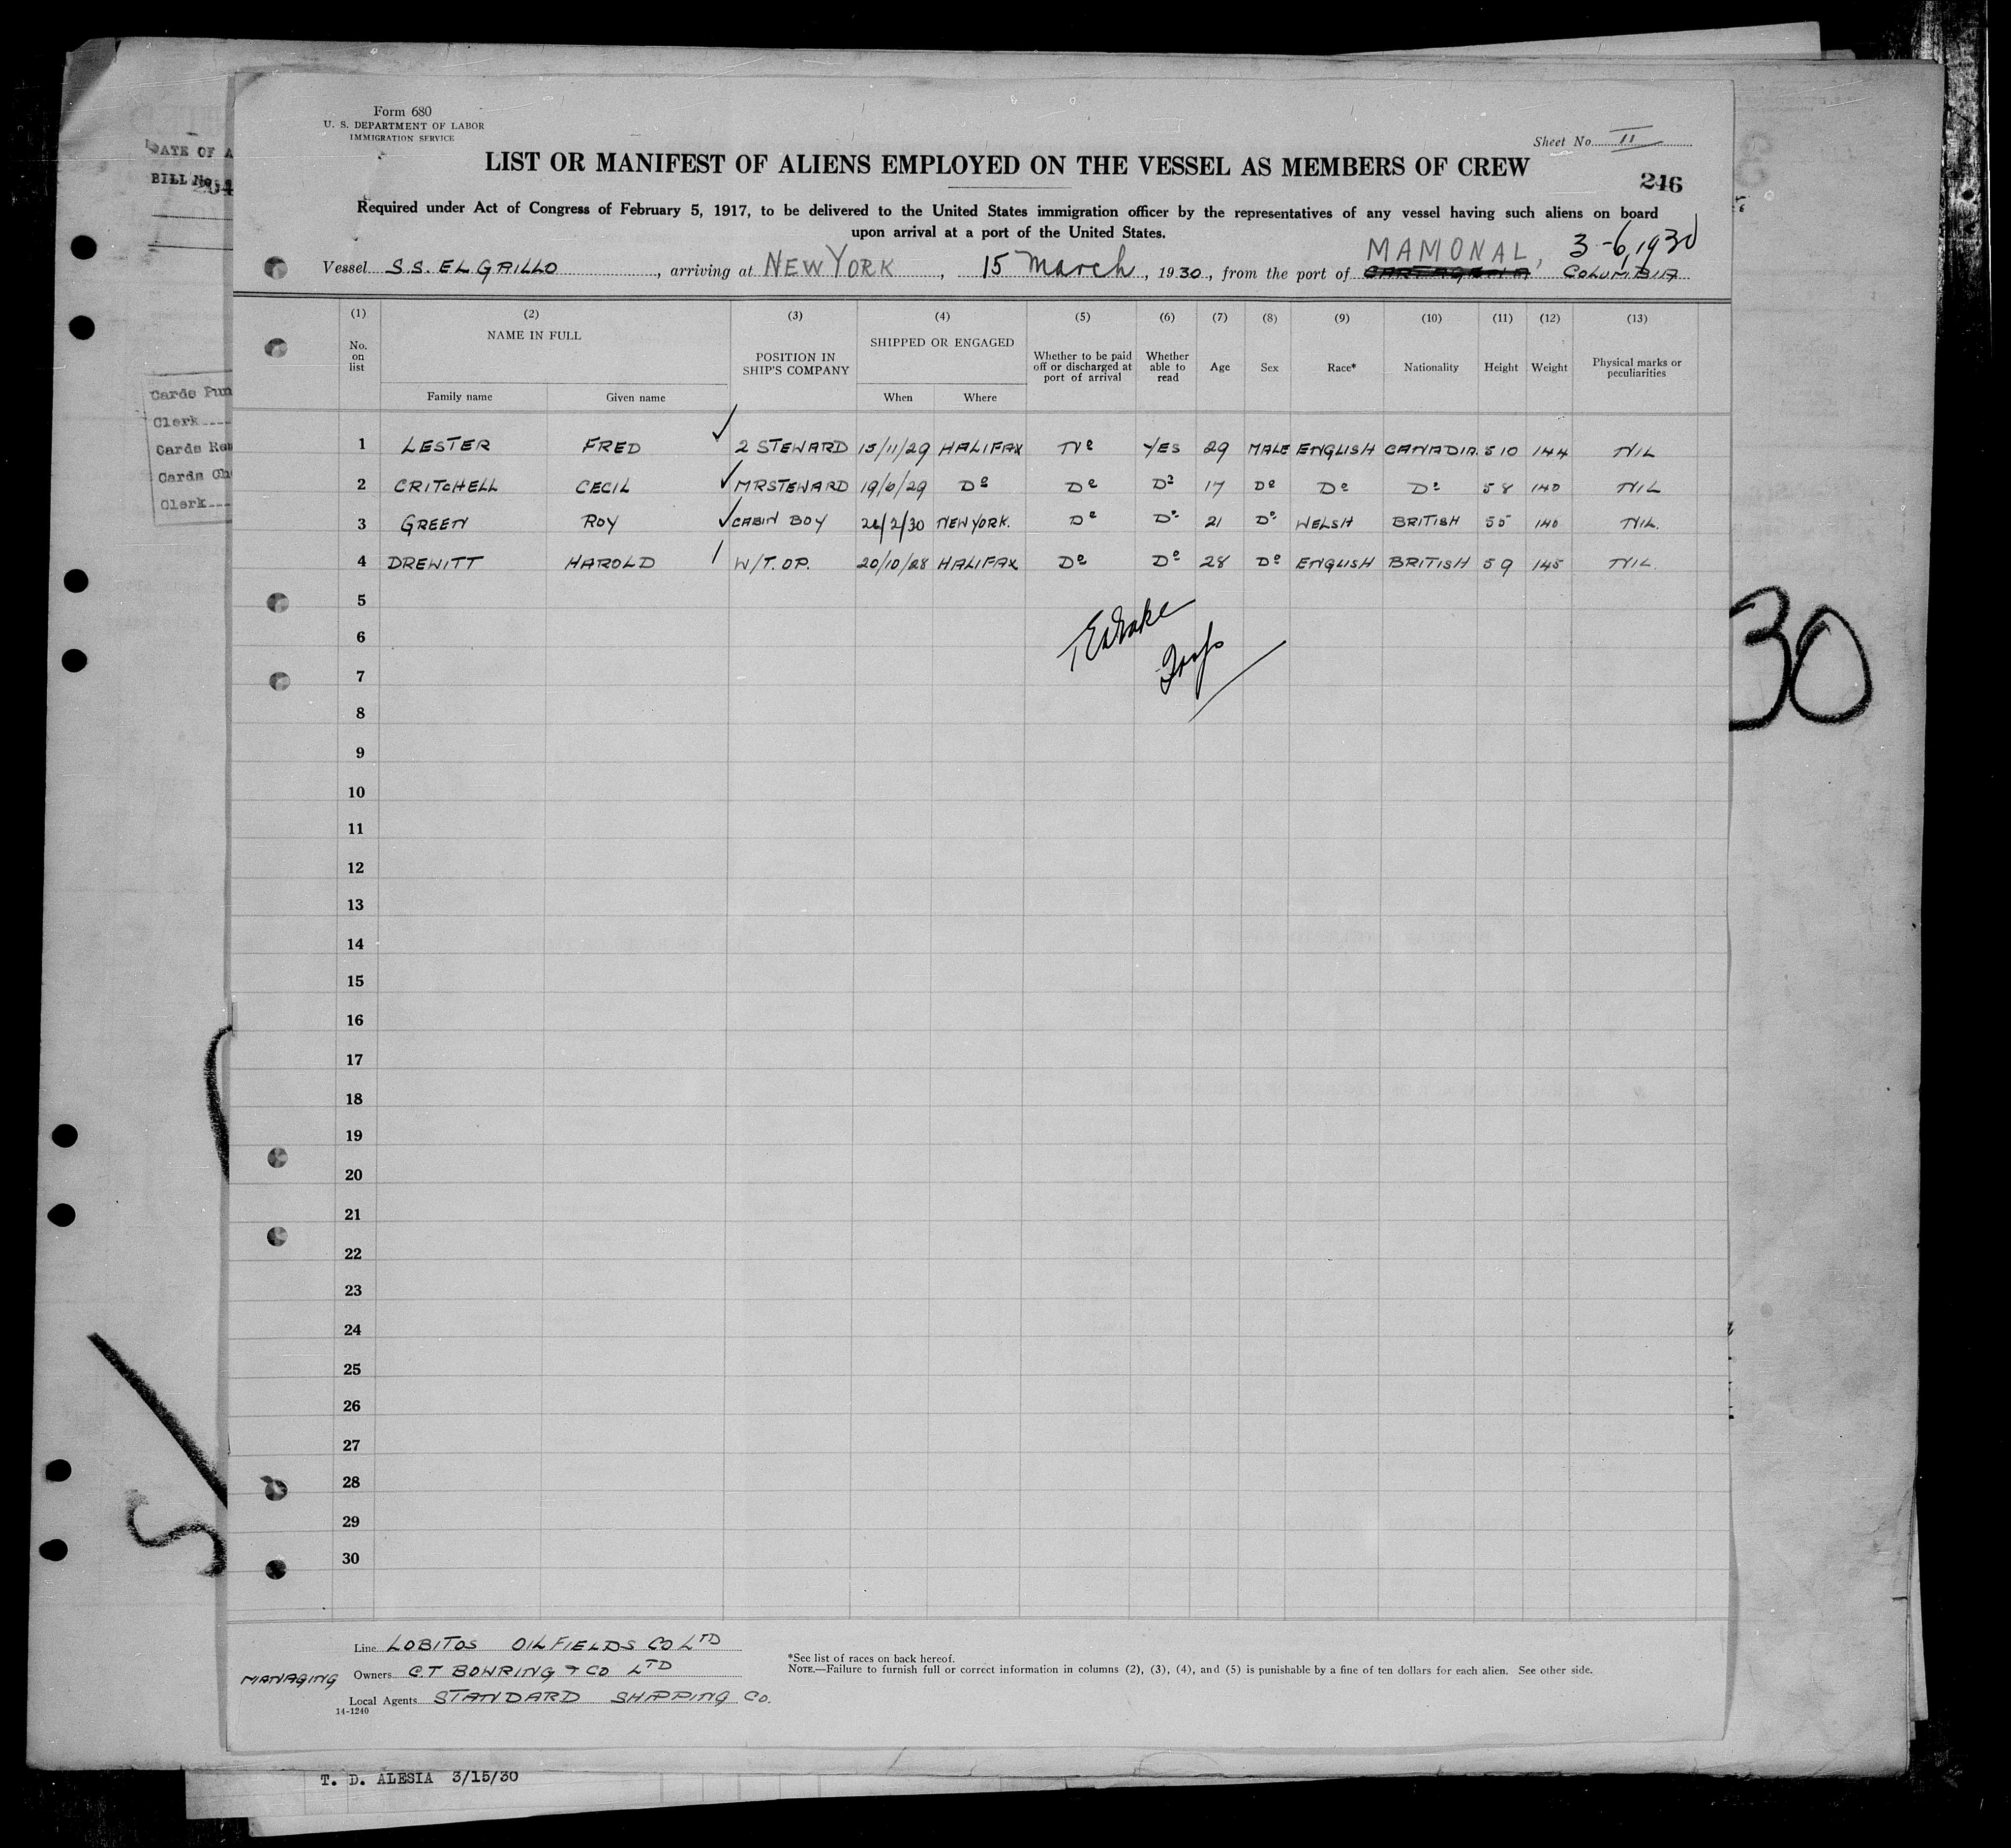 Form 680
U. S. DEPARTMENT OF LABOR
IMMIGRATION SERVICE
Sheet No. II
LIST OR MANIFEST OF ALIENS EMPLOYED ON THE VESSEL AS MEMBERS OF CREW
246
Required under Act of Congress of February 5, 1917, to be delivered to the United States immigration officer by the representatives of any vessel having such aliens on board
upon arrival at a port of the United States.
MAMONAL, 3-6, 1930
Vessel S.S. EL GRILLO, arriving at NEW YORK, 15 March, 1930, from the port of CARTAGENA COLUMBIA
(1) (2) (3) (4) (5) (6) (7) (8) (9) (10) (11) (12) (13)
No. on list NAME IN FULL POSITION IN SHIP'S COMPANY SHIPPED OR ENGAGED Whether to be paid off or discharged at port of arrival Whether able to read Age Sex Race* Nationality Height Weight Physical marks or peculiarities
Family name Given name When Where
1 LESTER FRED 2 STEWARD 15/11/29 HALIFAX No YES 29 MALE ENGLISH CANADIA. 5 10 144 NIL
2 CRITCHELL CECIL MRSTEWARD 19/6/29 Do Do Do 17 Do Do Do 5 8 140 NIL
3 GREEN ROY CABIN BOY 2/30 NEW YORK. Do Do 21 Do WELSH BRITISH 5 5 140 NIL.
4 DREWITT HAROLD W/T. OP. 20/10/28 HALIFAX Do Do 28 Do ENGLISH BRITISH 5 9 145 NIL.
5
6
7
8
9
10
11
12
13
14
15
16
17
18
19
20
21
22
23
24
25
26
27
28
29
30
Line LOBITOS OILFIELDS CO LTD
MANAGING Owners C.T BOWRING & CO LTD
Local Agents STANDARD SHIPPING CO.
14-1240
*See list of races on back hereof.
NOTE.—Failure to furnish full or correct information in columns (2), (3), (4), and (5) is punishable by a fine of ten dollars for each alien. See other side.
DATE OF A
BILL No.
Cards Pun
Clerk
Cards
Cards Ch
Clerk
30
T. D. ALESIA 3/15/30